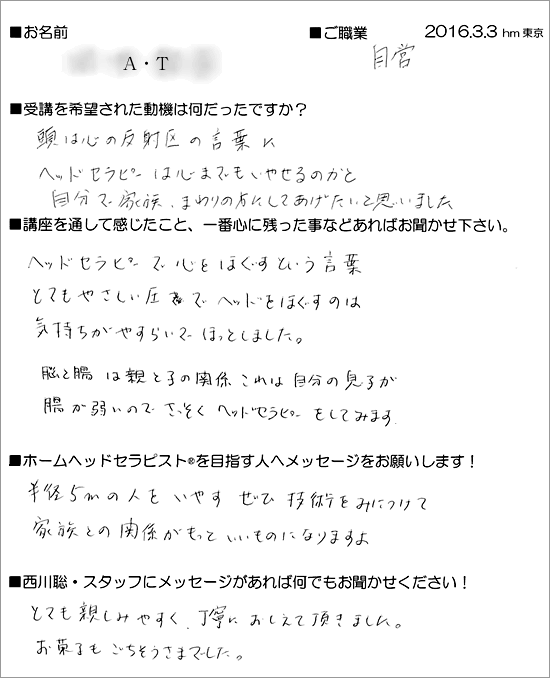 ■お名前
■ご職業 2016.3.3 hm 東京
A・T
自営
■受講を希望された動機は何だったですか？
頭は心の反射区の言葉に
ヘッドセラピーは心までもいやせるのかと
自分で家族、まわりの方にしてあげたいと思いました
■講座を通して感じたこと、一番心に残った事などあればお聞かせ下さい。
ヘッドセラピーで心をほぐすという言葉
とてもやさしい圧でヘッドをほぐすのは
気持ちがやすらいでほっとしました。
脳と腸は親と子の関係これは自分の息子が
腸が弱いのでさっそくヘッドセラピーをしてみます.
■ホームヘッドセラピスト®を目指す人へメッセージをお願いします！
半径5mの人をいやす ぜひ技術をみにつけて
家族との関係がもっといいものになりますよ
■西川聡・スタッフにメッセージがあれば何でもお聞かせください！
とても親しみやすく、丁寧におしえて頂きました。
お菓子もごちそうさまでした。